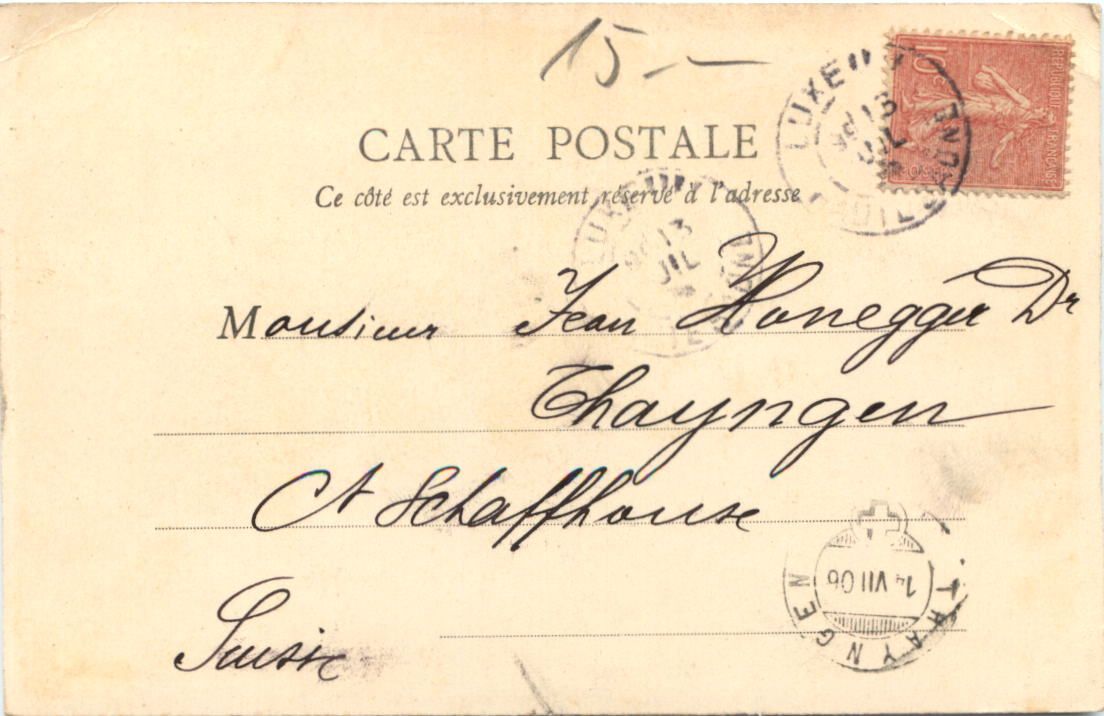 15.—
10c REPUBLIQUE FRANÇAISE
LUXEUIL
13 JIL
CARTE POSTALE
Ce côté est exclusivement réservé à l'adresse
13 JIL
Monsieur Jean Honegger Dr
Thayngen
Ct Schaffhouse
Suisse
THAYNGEN
14 VII 06